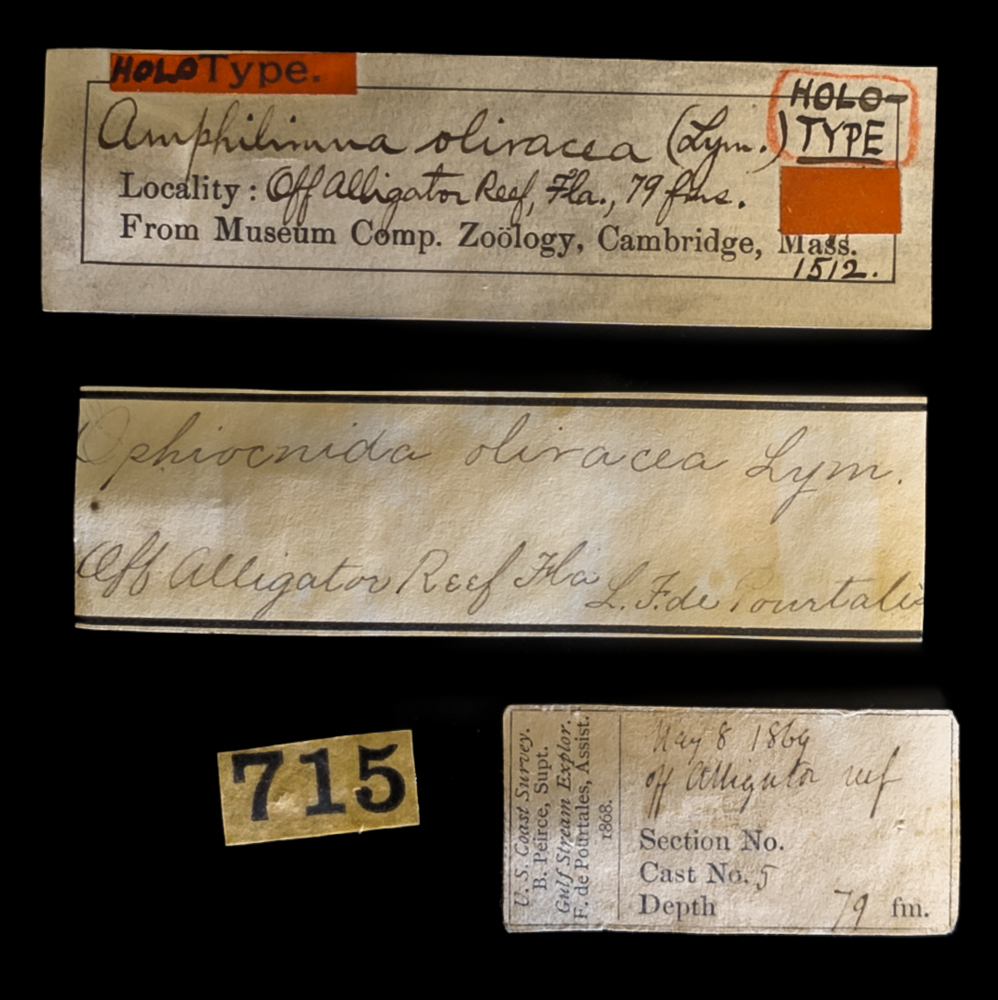 HOLOType.
HOLO-
TYPE
Amphilimna olivacea (Lym.)
Locality: Off Alligator Reef, Fla., 79 fms.
From Museum Comp. Zoölogy, Cambridge, Mass.
1512.
Ophiocnida olivacea Lym.
Off Alligator Reef Fla
L.F.de Pourtalès
715
U. S. Coast Survey.
B. Peirce, Supt.
Gulf Stream Explor.
F. de Pourtales, Assist.
1868.
May 8 1869
off Alligator reef
Section No.
Cast No. 5
Depth 79 fm.